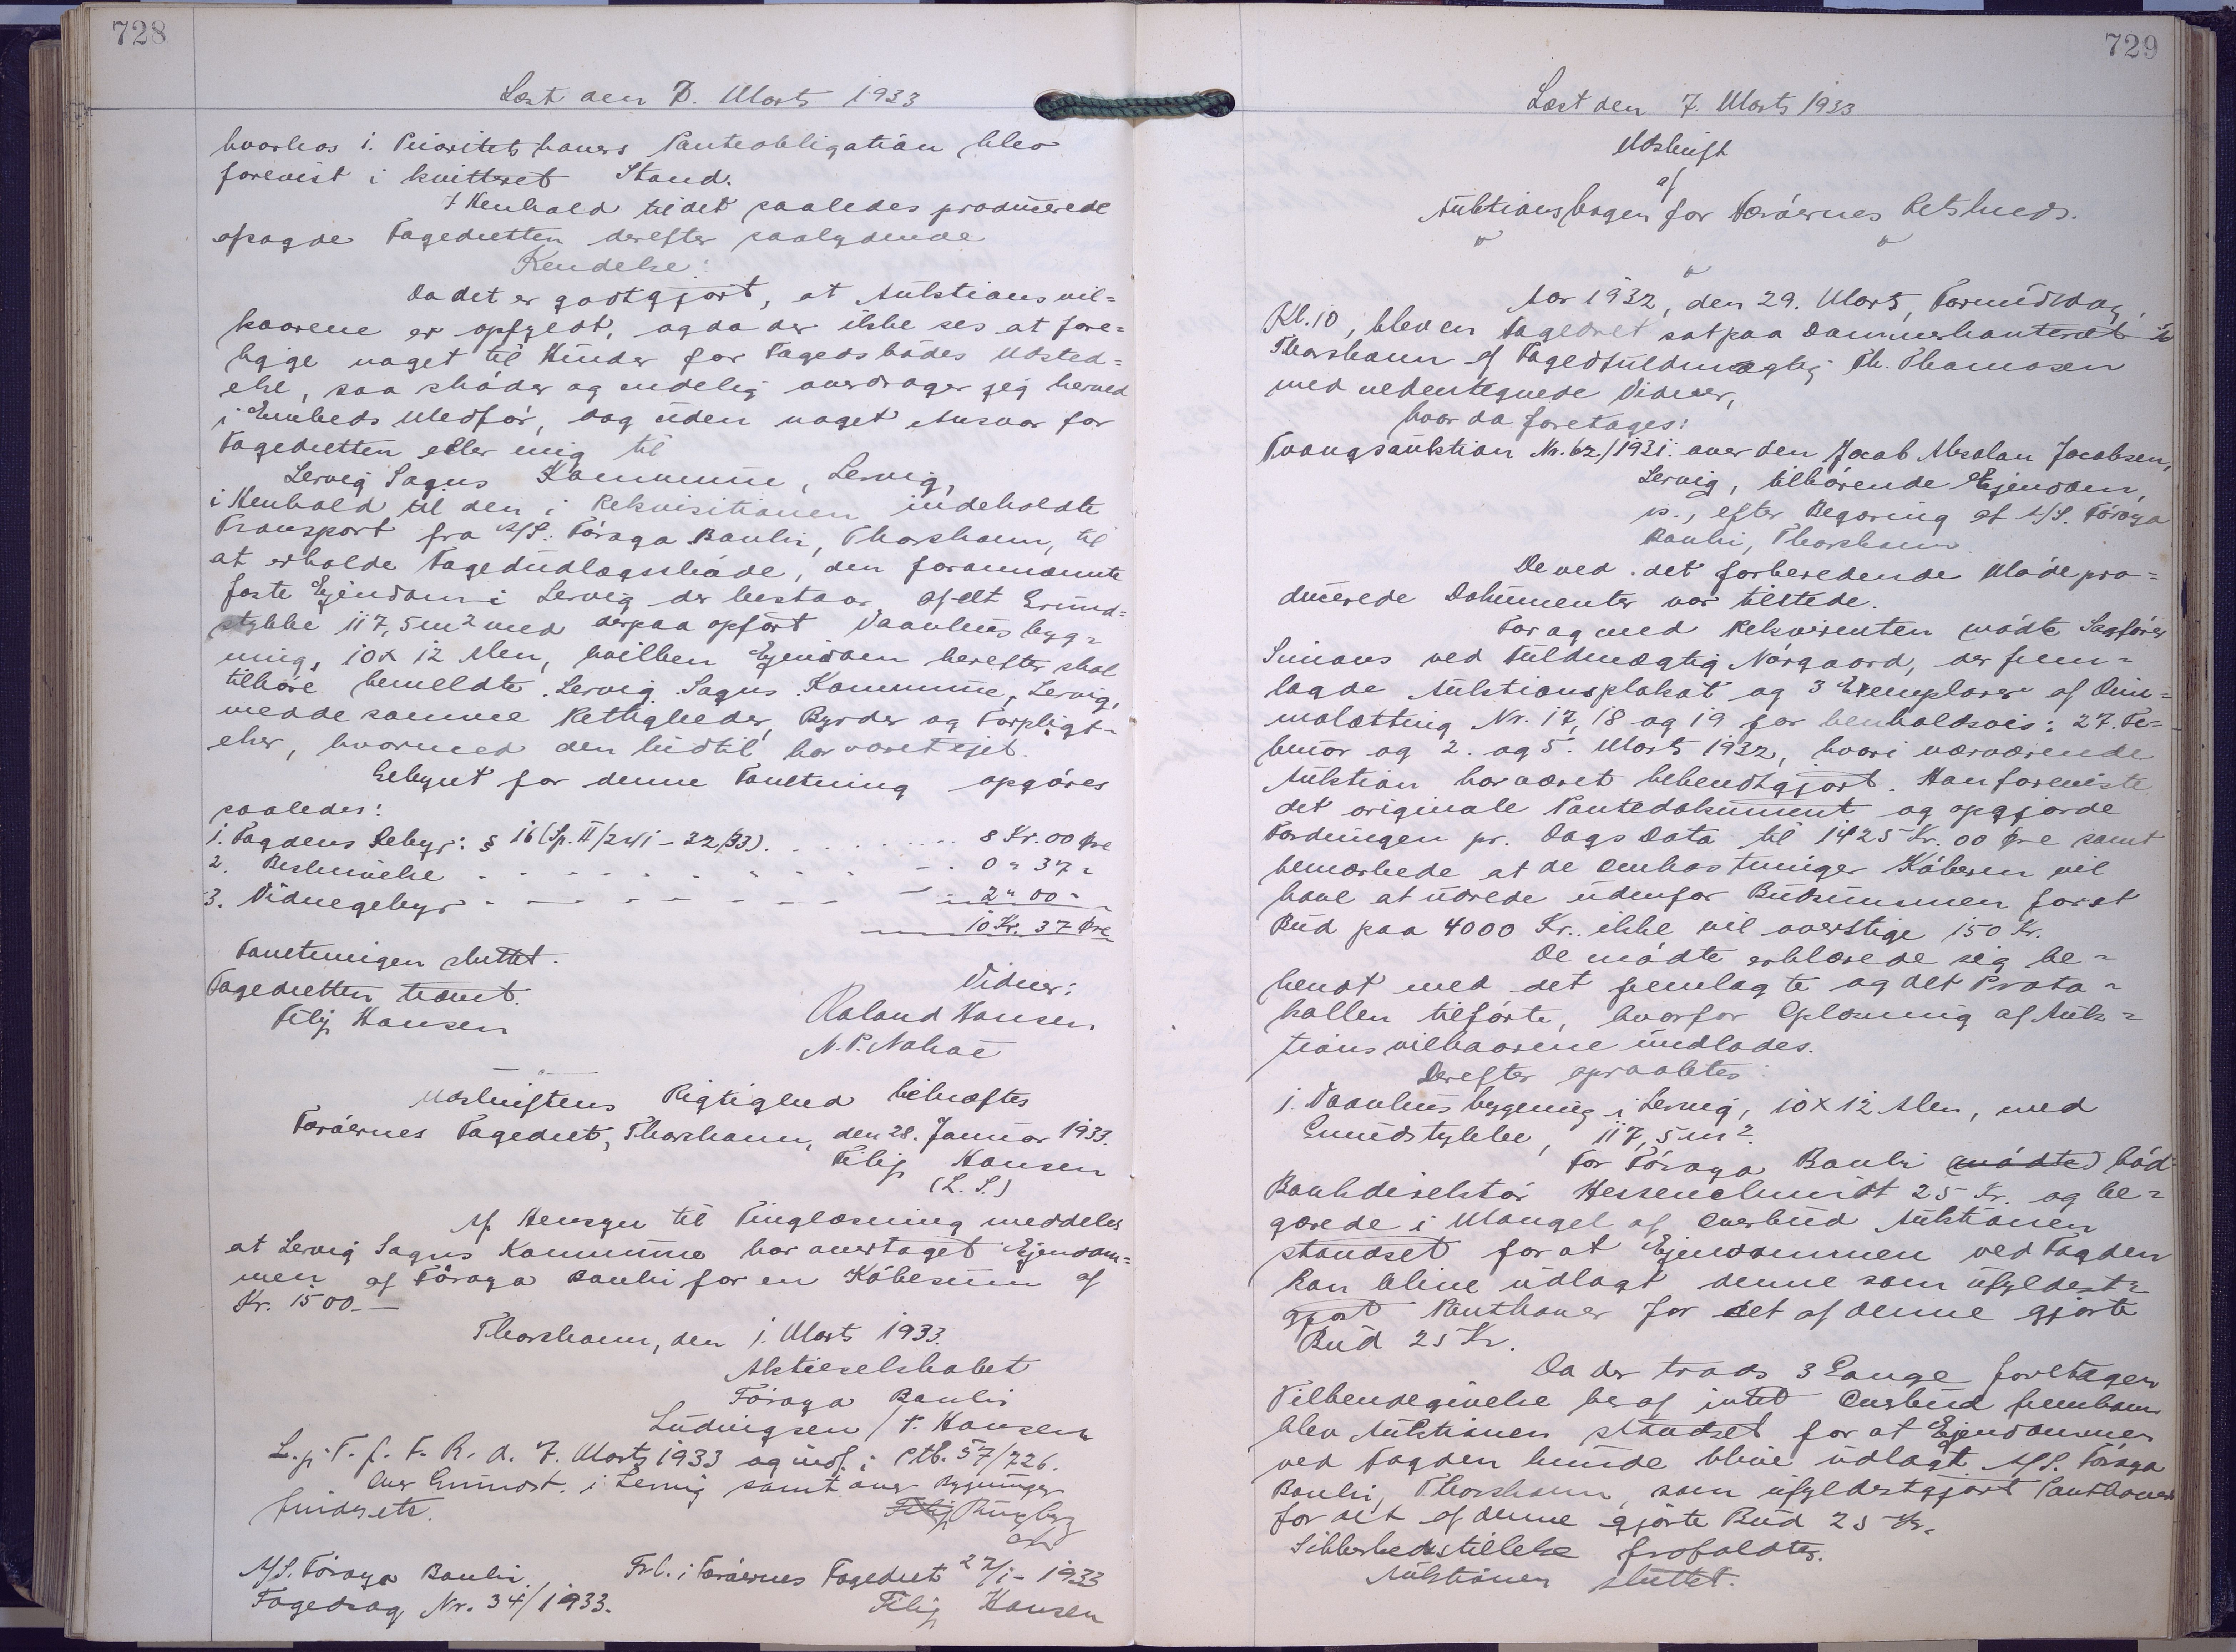 728
Læst den 7. Marts 1933
hvorhos 1. Prioritetshavers Panteobligation blev
forevist i kvitteret Stand.
I Henhold til det saaledes producerede
afsagde Fogedretten derefter saalydende
Kendelse:
Da det er godtgjort, at Auktionsvil=
kaarene er opfyldt, og da der ikke ses at fore=
ligge noget til Hinder for Fogedskødes Udsted=
else, saa skøder og endelig overdrager jeg herved
i Embeds Medfør, dog uden noget Ansvar for
Fogedretten eller mig til
Lervig Sogns Kommune, Lervig,
i Henhold til den i Rekvisitionen indeholdte
Transport fra A/S. Föroya Banki, Thorshavn, til
at erholde Fogedudlægsskøde, den forannævnte
faste Ejendom i Lervig der bestaar af et Grund=
stykke 117,5 m2 med derpaa opført Vaanhusbyg=
ning, 10 x 12 Alen, hvilken Ejendom herefter skal
tilhøre bemeldte Lervig Sogns Kommune, Lervig,
med de samme Rettigheder, Byrder og Forpligt=
elser, hvormed den hidtil har været ejet.
Gebyret for denne Forretning opgøres
saaledes:
1. Fogdens Gebyr: § 16 (Sp. II/241 - 32/33). . . . . . 8 Kr. 00 Øre
2. Beskrivelse . . . . . . . 0 " 37 "
3. Vidnegebyr - - - - - - - 2 " 00 "
10 Kr. 37 Øre
Forretningen sluttet.
Fogedretten hævet.
Vidner:
Filip Hansen
Roland Hansen
N. P. Nolsøe
Udskriftens Rigtighed bekræftes
Færøernes Fogedret, Thorshavn, den 28. Januar 1933.
Filip Hansen
(L. S.)
Af Hensyn til Tinglæsning meddeles
at Lervig Sogns Kommune har overtaget Ejendom=
men af Föroya Banki for en Købesum af
Kr. 1500.—
Thorshavn, den 1. Marts 1933.
Aktieselskabet
Föroya Banki
Ludvigsen / P. Hansen
L. p. T. f. F. R. d. 7. Marts 1933 og indf. i Ptb. 57/726.
Over Grundst. i Lervig samt over Bygninger
findes etc.
Filip Ringberg
A/S. Föroya Banki
Frl. i Færøernes Fogedret 27/1 - 1933
Fogedsag Nr. 34/1933.
Filip Hansen
729
Læst den 7. Marts 1933
Udskrift
af
Auktionsbogen for Færøernes Retskreds.
Aar 1932, den 29. Marts, Formiddag
Kl. 10, blev en Fogedret sat paa Dommerkontoret i
Thorshavn af Fogedfuldmægtig Th. Thomasen
med undertegnede Vidner,
hvor da foretages:
Tvangsauktion Nr. 62/1931: over den Jacob Absalon Jacobsen,
Lervig, tilhørende Ejendom,
s., efter Begæring af A/S. Föroya
Banki, Thorshavn.
De ved det forberedende Møde pro=
ducerede Dokumenter var tilstede.
For og med Rekvirenten mødte Sagfører
Simans ved Fuldmægtig Nørgaard, der frem=
lagde Auktionsplakat og 3 Exemplarer af Dim=
malætting Nr. 17, 18 og 19 for henholdsvis: 27. Fe=
bruar og 2. og 5. Marts 1932, hvori nærværende
Auktion har været bekendtgjort. Han foreviste
det originale Pantedokument og opgjorde
Fordringen pr. Dags Dato til 1425 Kr. 00 Øre samt
bemærkede at de Omkostninger Køberen vil
have at udrede udenfor Budsummen for et
Bud paa 4000 Kr. ikke vil overstige 150 Kr.
De mødte erklærede sig be=
kendt med det fremlagte og det Proto=
kollen tilførte, hvorfor Oplæsning af Auk=
tionsvilkaarene undlodes.
Derefter opraabtes:
1. Vaanhusbygning i Lervig, 10 x 12 Alen, med
Grundstykke, 117,5 m2.
For Föroya Banki (mødte) bød
Bankdirektør Hessenschmidt 25 Kr. og be=
gærede i Mangel af Overbud Auktionen
standset for at Ejendommen ved Fogden
kan blive udlagt denne som ufyldest=
gjort Panthaver for det af denne gjorte
Bud 25 Kr.
Da der trods 3 Gange foretagen
Tilkendegivelse heraf intet Overbud fremkom
blev Auktionen standset for at Ejendommen
ved Fogden kunde blive udlagt A/S. Föroya
Banki, Thorshavn, som ufyldestgjort Panthaver
for det af denne gjorte Bud 25 Kr.
Sikkerhedsstillelse frafaldtes.
Auktionen sluttet.